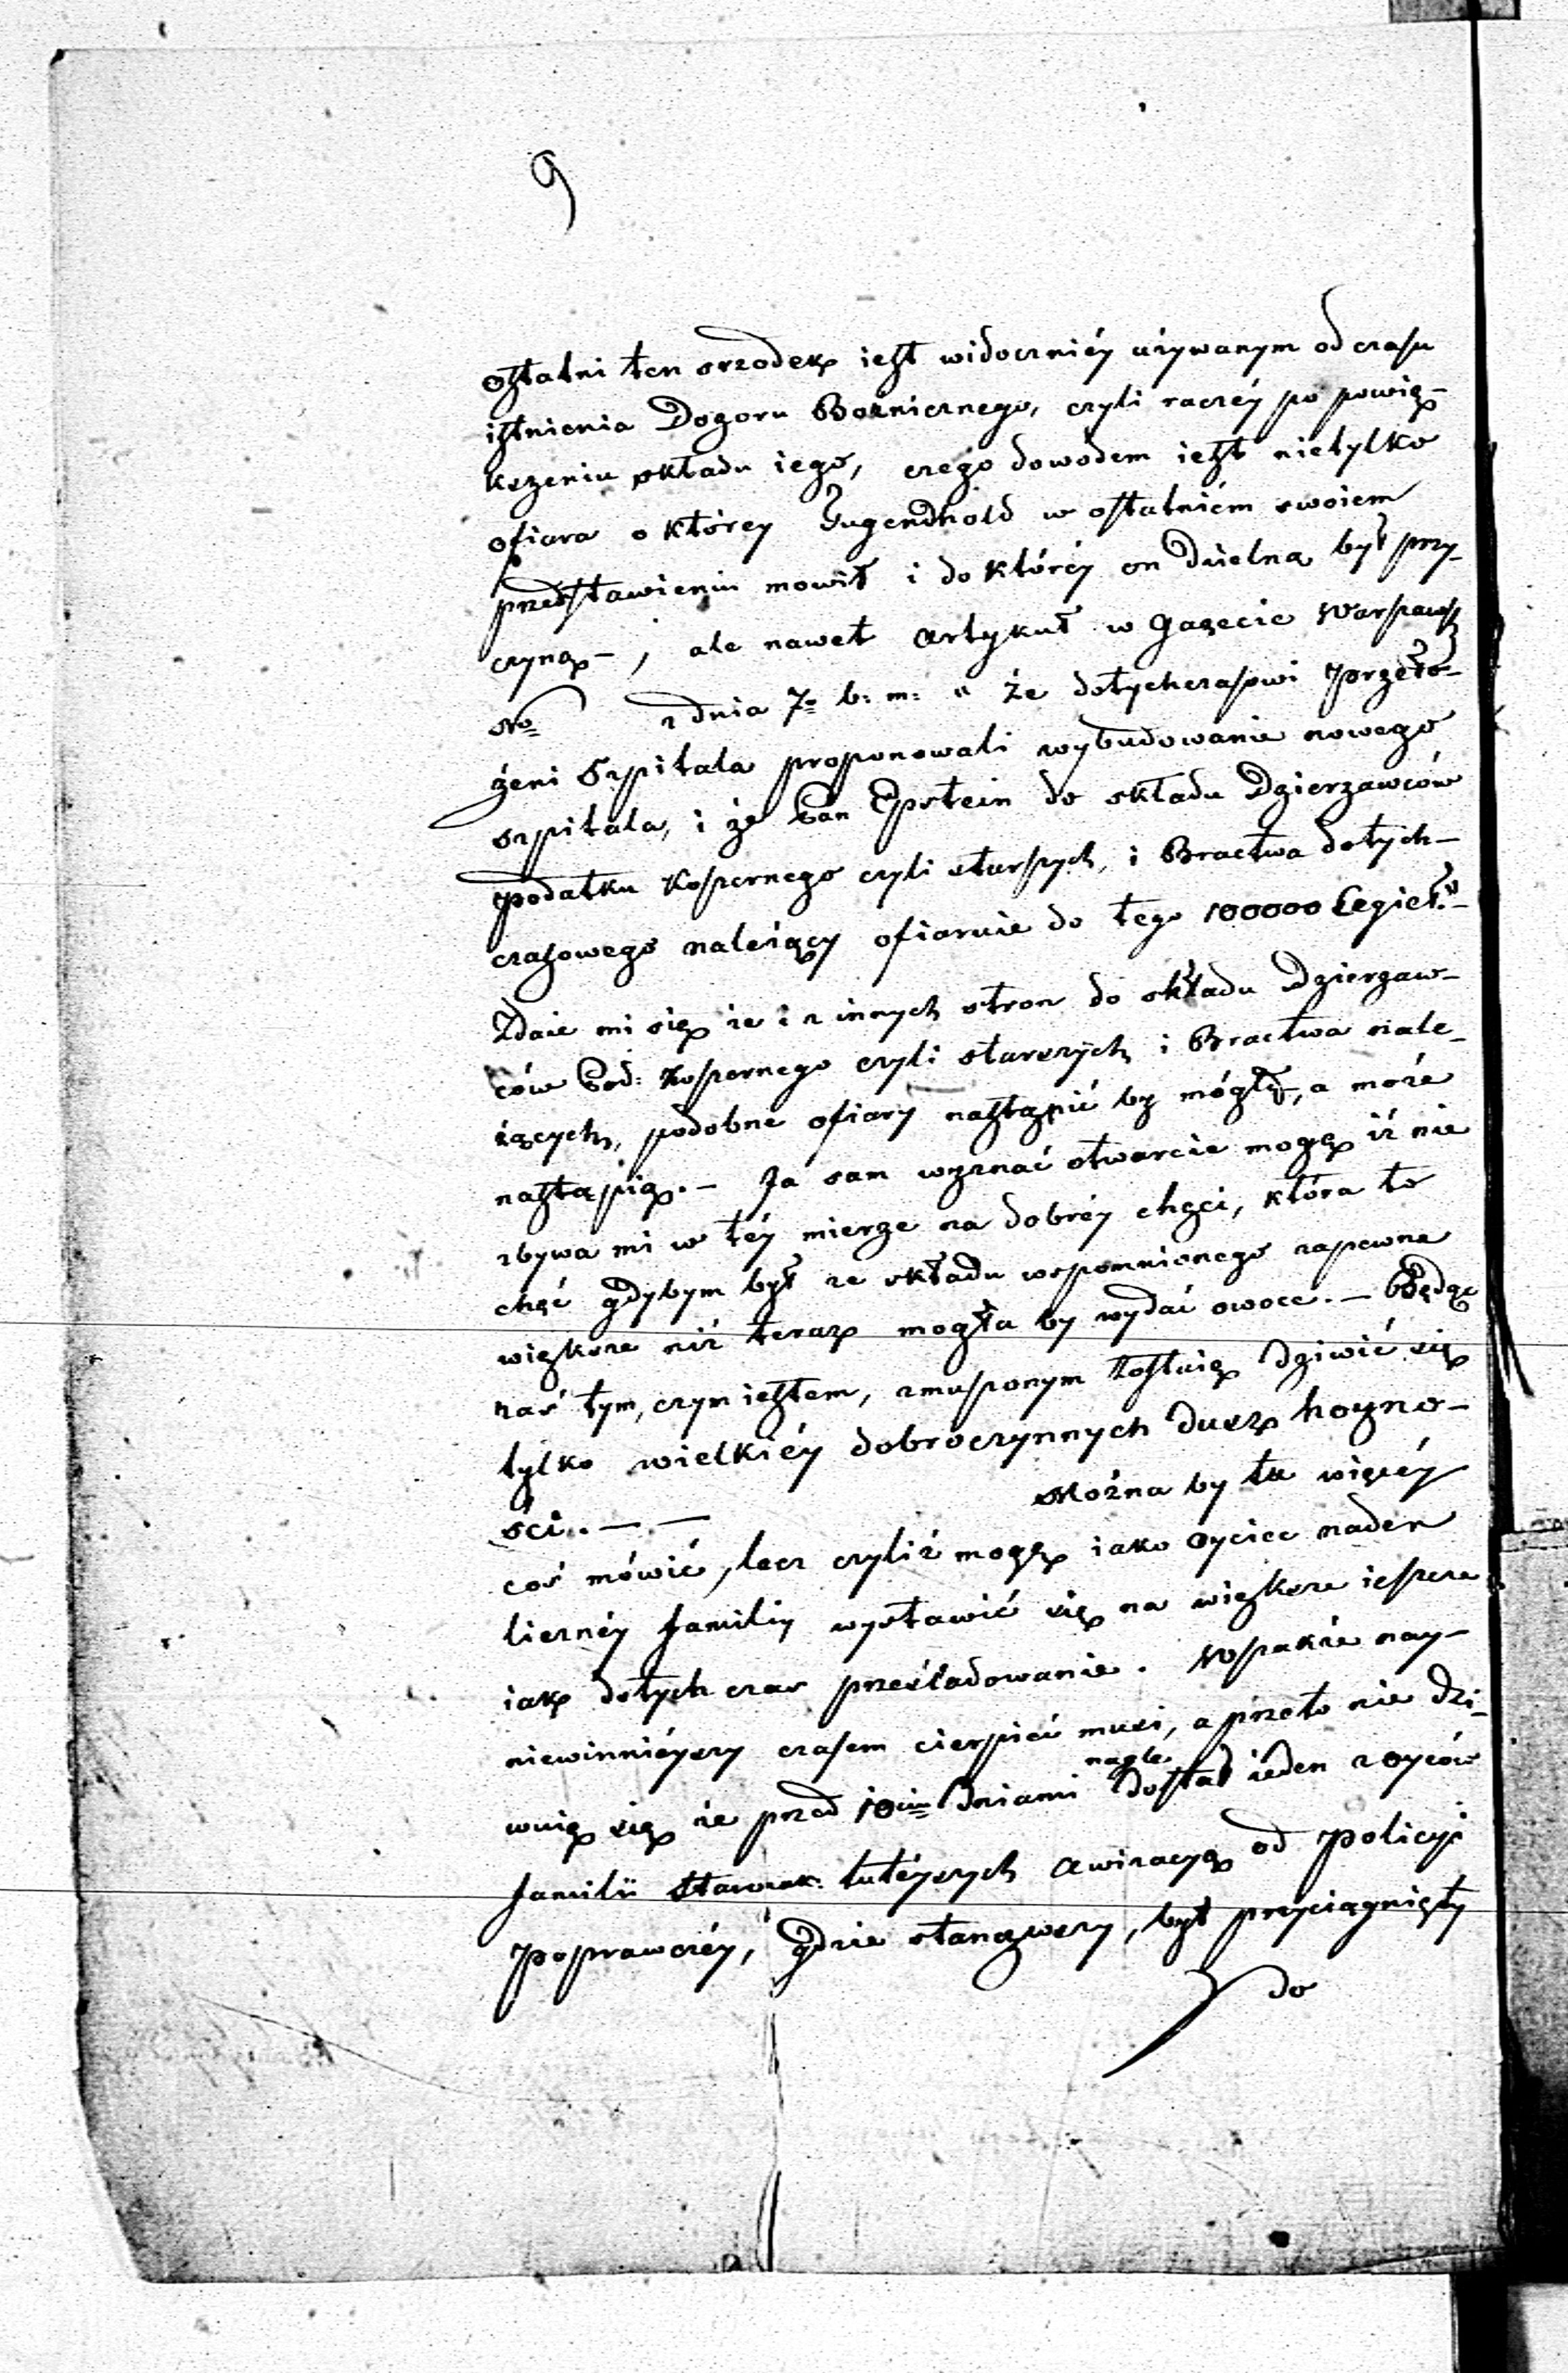 9
ostatni ten srzodek iest widoczniéy używanym od czasu
istnienia Dozoru Boznicznego, czyli raczéy po powię-
kszeniu składu iego, czego dowodem iest nietylko
ofiara o którey Jugendhold w ostatniém swoiem
przedstawieniu mowił i do któréy on dzielną był przy-
czyną –, ale nawet Artykuł w Gazecie Warszaws
No z dnia 7o b: m: „ że dotychczasowi Przeło-
żeni Szpitala proponowali wybudowanie nowego
szpitala, i że Pan Epstein do składu Dzierzawców
Podatku Koszernego czyli starszych, i Bractwa dotych-
czasowego należący ofiaruie do tego 100000 Cegieł." –
Zdaie mi się że i z innych stron do składu Dzierzaw-
ców Pod: Koszernego czyli starszych i Bractwa nale-
żących, podobne ofiary nastąpić by mógły, a może
nastąpią. – Ja sam wyznać otwarcie mogę iż nie
zbywa mi w téy mierze na dobréy chęci, która to
chęć gdybym był ze składu wspomnionego zapewne
większe niż teraz mogła by wydać owoce. – Będąc
zaś tym, czym iestem, zmuszonym zostaię dziwić się
tylko wielkiéy dobroczynnych dusz hoyno-
ści. – –
Można by tu więcéy
coś mówić, lecz czyliż mogę iako oyciec nader
licznéy familiy wystawić się na większe ieszcze
iak dotych czas prześladowanie. Wszakże nay-
niewinniéyszy czasem cierpieć musi, a przeto nie dzi-
wuię się że przed 10ciu dniami nagle dostał ieden z oyców
familii Starozak: tutéyszych Awizacyą od Policyi
Poprawczéy, gdzie stanąwszy, był przyciągnięty
do